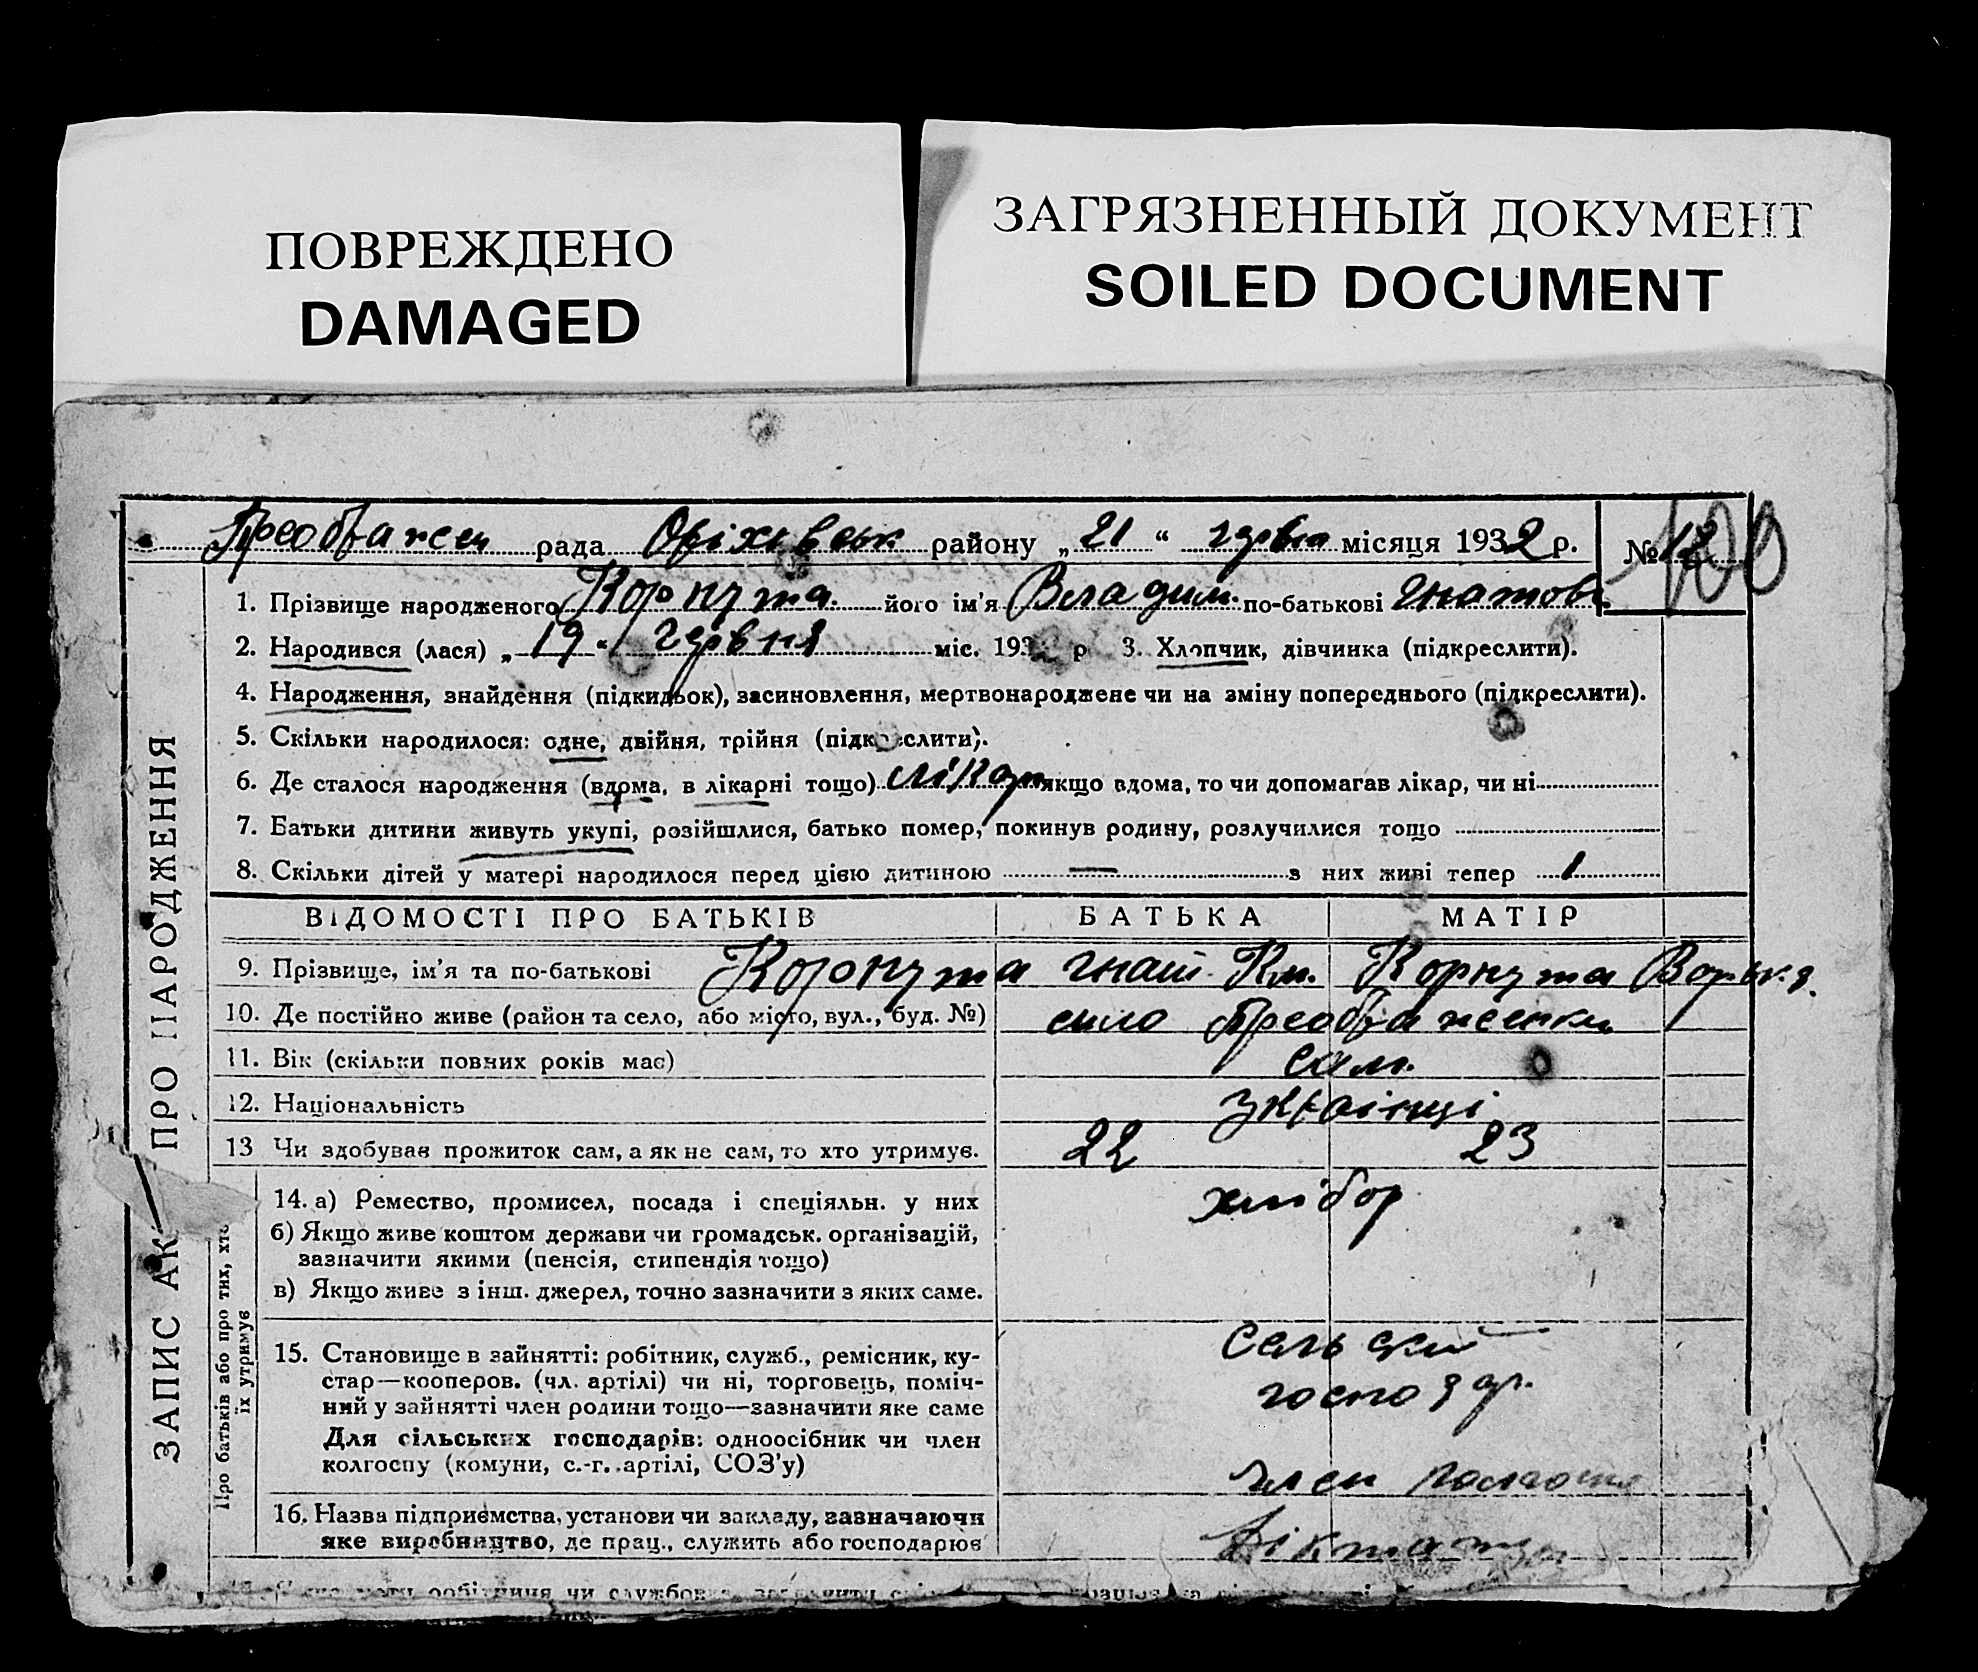 ПОВРЕЖДЕНО
DAMAGED
ЗАГРЯЗНЕННЫЙ ДОКУМЕНТ
SOILED DOCUMENT
Преображен рада Оріхівськ району „21“ червня місяця 1932 р. № 12 100
1. Прізвище народженого Корпута його ім'я Владим. по-батькові Гнатов.
2. Народився (лася) „19“ червня міс. 193 р 3. Хлопчик, дівчинка (підкреслити).
4. Народження, знайдення (підкидьок), засиновлення, мертвонароджене чи на зміну попереднього (підкреслити).
5. Скільки народилося: одне, двійня, трійня (підкреслити).
6. Де сталося народження (вдома, в лікарні тощо) лікар якщо вдома, то чи допомагав лікар, чи ні
7. Батьки дитини живуть укупі, розійшлися, батько помер, покинув родину, розлучилися тощо
8. Скільки дітей у матері народилося перед цією дитиною — з них живі тепер 1
ВІДОМОСТІ ПРО БАТЬКІВ БАТЬКА МАТІР
9. Прізвище, ім'я та по-батькові Корпута Гнат Кл. Корпута
10. Де постійно живе (район та село, або місто, вул., буд. №) село Преображенка
11. Вік (скільки повних років має) сам.
12. Національність Українці
13 Чи здобував прожиток сам, а як не сам, то хто утримує. 22 23
14. а) Ремество, промисел, посада і спеціяльн. у них хлібор
б) Якщо живе коштом держави чи громадськ. організацій,
зазначити якими (пенсія, стипендія тощо)
в) Якщо живе з інш. джерел, точно зазначити з яких саме.
15. Становище в зайнятті: робітник, служб., ремісник, ку-
стар—кооперов. (чл. артілі) чи ні, торговець, поміч-
ний у зайнятті член родини тощо—зазначити яке саме
Для сільських господарів: одноосібник чи член
колгоспу (комуни, с.-г. артілі, СОЗ'у)
Сельский
господар.
член
16. Назва підприємства, установи чи закладу, зазначаючи
яке виробництво, де прац., служить або господарює
ЗАПИС АК ПРО НАРОДЖЕННЯ
Про батьків або про тих, хто
їх утримує